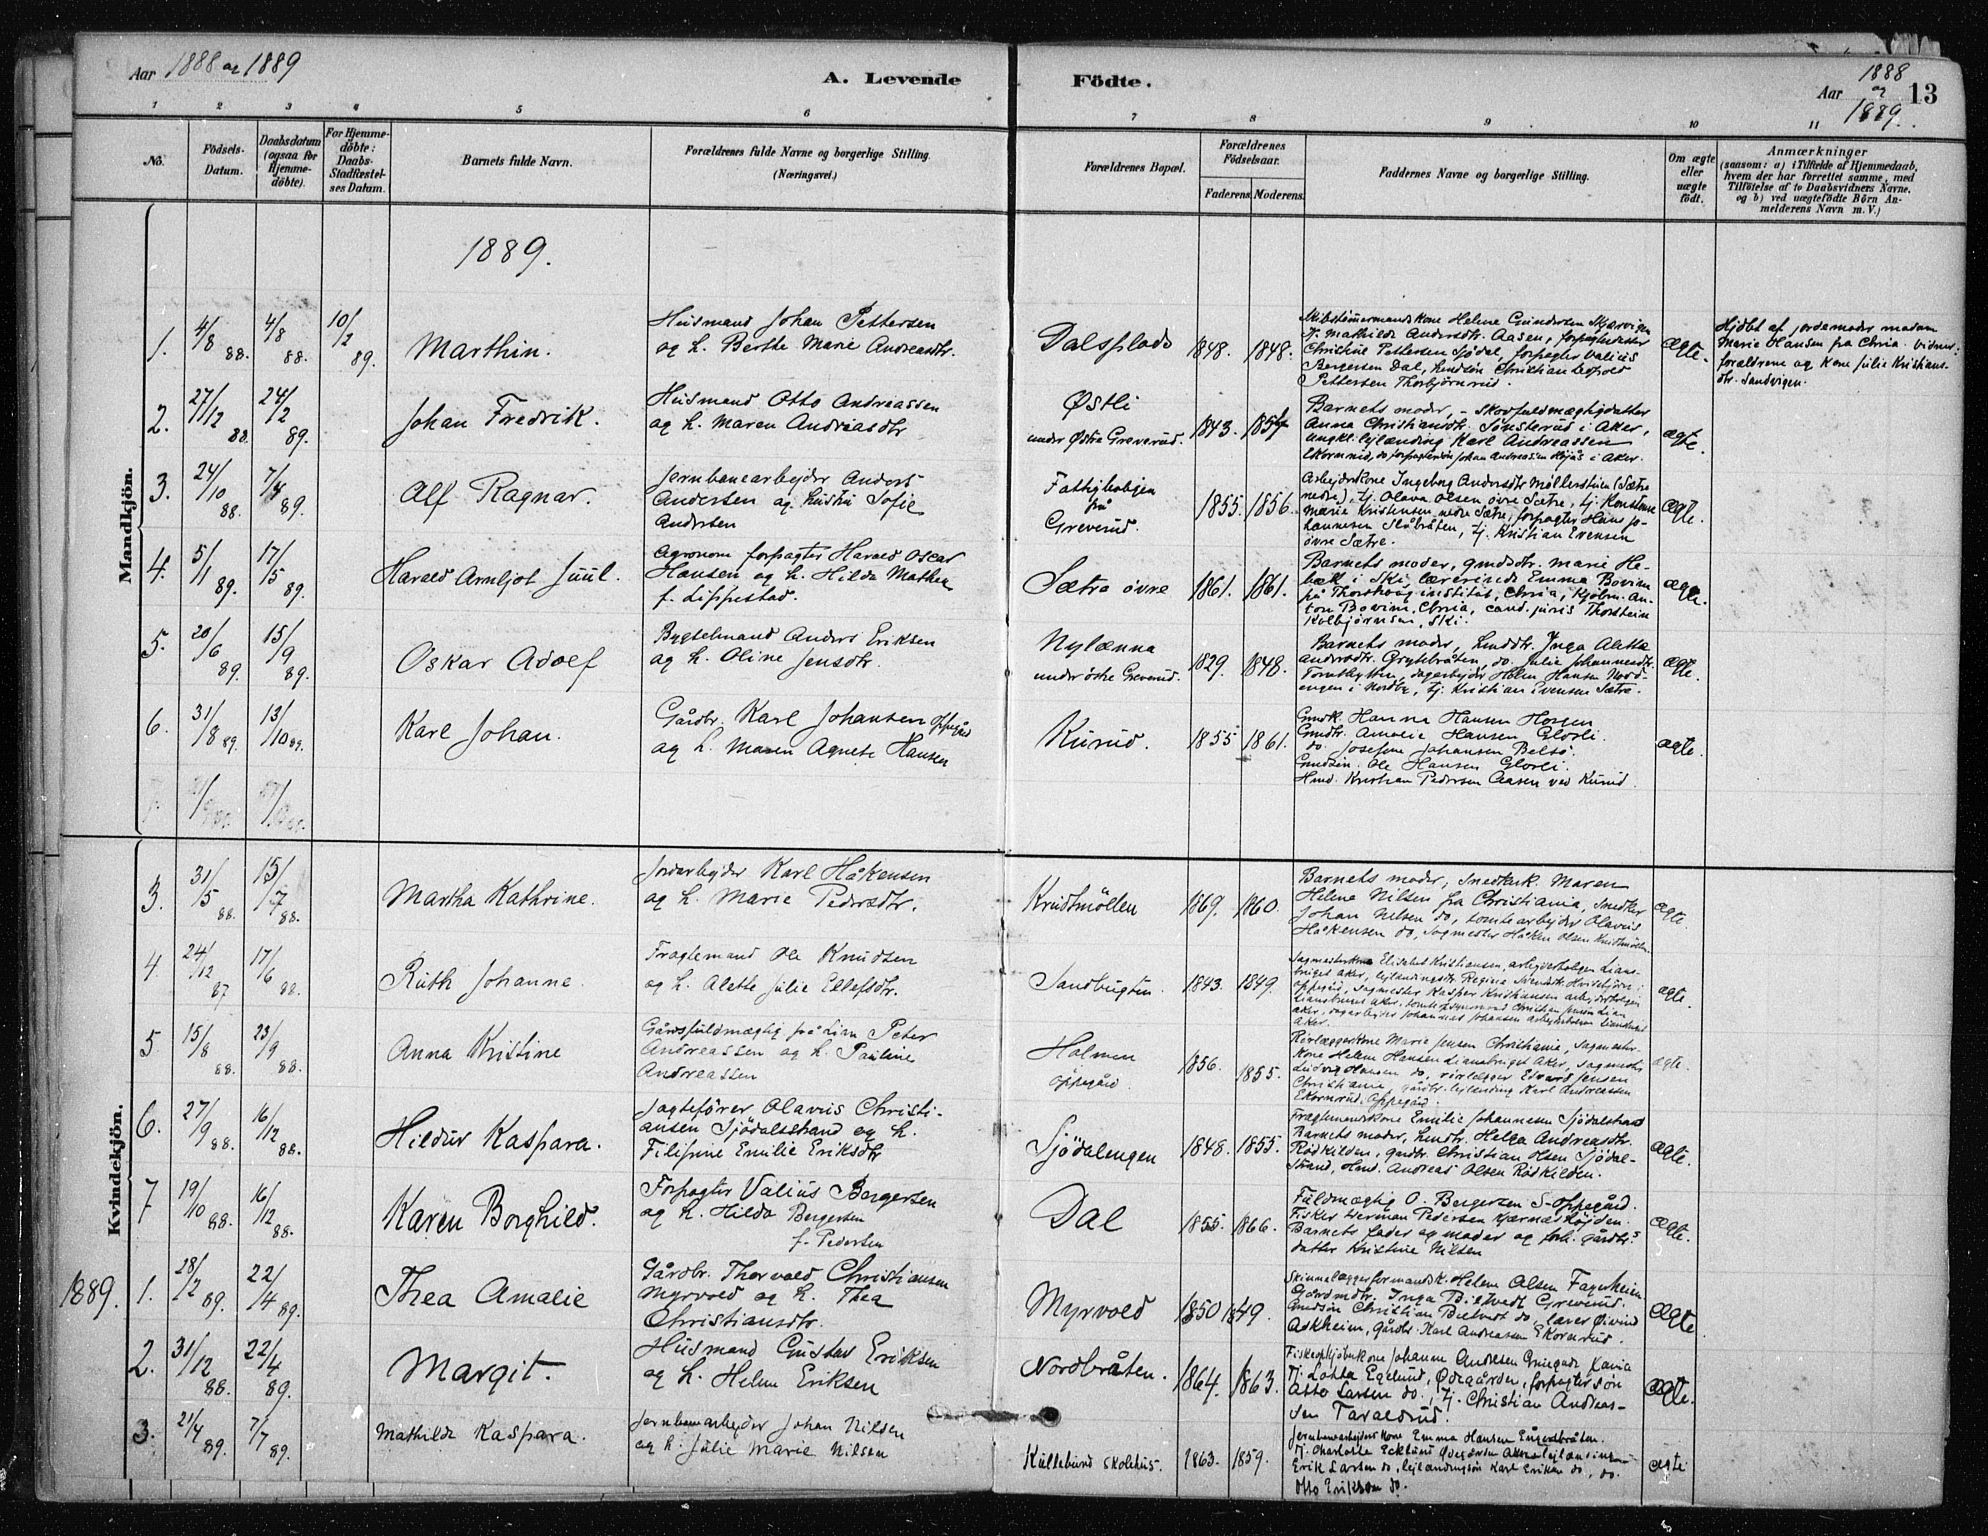 Aar 1888 og 1889
A. Levende
Födte.
Aar 1888 og 1889.
13
1 2 3 4 5 6 7 8 9 10 11
No.
Födsels-
Datum.
Daabsdatum
(ogsaa for
Hjemme-
döbte).
For Hjemme-
döbte:
Daabs-
Stadfæstel-
ses Datum.
Barnets fulde Navn.
Forældrenes fulde Navne og borgerlige Stilling
(Næringsvei.)
Forældrenes Bopæl.
Forældrenes
Födselsaar.
Faderens. Moderens.
Faddernes Navne og borgerlige Stilling.
Om ægte
eller
uægte
födt.
Anmærkninger
(saasom: a) i Tilfælde af Hjemmedaab,
hvem der har forrettet samme, med
Tilföielse af to Daabsvidners Navne.
og b) ved uægtefödte Börn An-
melderens Navn m. V.)
1889.
Mandkjön.
1. 4/8 88. 4/8 88. 10/2 89.
Marthin.
Husmand Johan Pettersen
og h. Berthe Marie Andreasdtr.
Dalsplads
1848. 1848.
Skibstömermandskone Helene Gundersen Skjærvigen
Tj. Mathilde Andersdtr Aasen, forpagterdatter
Christine Pettersen Sjödal, forpagter Valius
Bergersen Dal, husmsön Christian Leopold
Pettersen Thorbjörnrud.
ægte.
Hjdbt af jordemoder madam
Marie Hansen fra Chria. Vidner:
forældrene og Kone Julie Kristians-
dtr. Sandvigen.
2. 27/12 88. 24/2 89.
Johan Fredrik.
Husmand Otto Andreassen
og h. Maren Andreasdtr
Østli
under Østre Greverud.
1843. 1854
Barnets moder, - Skovfuldmægtigdatter
Anna Christiansdtr. Sönsterud i Aker,
ungkl. leilænding Karl Andreassen
Ekornrud, do forpagtersön Johan Andreassen i Aker.
ægte.
3. 24/10 88. 7/4 89.
Alf Ragnar.
Jernbanearbejder Anders
Andersen og hustru Sofie
Andersen
Fattigboligen
på
Greverud.
1855. 1856.
Arbejderkone Ingeborg Andersdtr Möllerstuen (Sætre
nedre), tj. Olava Olsen övre Sætre, tj. Konstanse
Marie Kristensen nedre Sætre, forpagter Hans Jo-
hannesen Slåbråten, tj. Kristian Evensen
övre Sætre.
ægte.
4. 5/1 89. 17/5 89.
Harald Arnljot Juul.
Agronom forpagter Harald Oscar
Hansen og h. Hilda Mathea
f. Lippestad.
Sætra övre
1861. 1861.
Barnets moder, gmdsdtr. Marie He-
bæk i Ski, lærerinde Emma Bovim
på Thorskoug institut, Chria, Kjöbm. An-
ton Bovim, Chria, cand. juris Thorstein
Kolbjörnsen, Ski.
ægte.
5. 20/6 89. 15/9 89.
Oskar Adolf
Bygselmand Anders Eriksen
og h. Oline Jensdtr.
Nylænna
under östre Greverud.
1829. 1848.
Barnets moder, husmdtr. Inga Aletta
Andersdtr. Grytebråten, do. Julie Johannesdtr.
Tomthytten, dagarbejder Helin Hansen Nord-
engen i Nordby, tj. Kristian Evensen Sætre.
ægte.
6. 31/8 89. 13/10 89.
Karl Johan.
Gårdbr. Karl Johansen Oppegård
og h. Maren Agnete Hansen
Kurud.
1855 1861.
Gmdk. Hanna Hansen Hossen
Gmdtr. Amalie Hansen Glorli.
do. Josefine Johansen Belsö.
Gmdsön. Ole Hansen Glorli.
Hmd. Kristian Pedersen Aasen ved Kurud.
ægte.
Kvindekjön.
3. 31/5 88. 15/7 88.
Martha Kathrine.
Jordarbejder Karl Håkensen
og h. Marie Pedersdtr.
Krudtmöllen
1869. 1860.
Barnets moder, Snedkerk. Maren
Helene Nilsen fra Christiania, Snedker
Johan Nilsen do, tomtearbejder Olavus
Håkensen do, Sagmester Håken Olsen Krudtmöllen
ægte.
4. 24/12 87 17/6 88.
Ruth Johanne.
Fragtemand Ole Knudsen
og h. Alette Julie Ellefsdtr.
Sandbugten.
1843. 1849.
Sagmesterkone Elisabet Kristiansen, arbejderboligen Lians-
bruget Aker, leilændingsdtr. Regine
Oppegård, Sagmester Kasper Kristiansen arbejderboligen
Liansbruget Aker,
Aker, dagarbejder Johannes Johansen
Aker.
ægte.
5 15/8 88. 23/9 88.
Anna Kristine
Gårdsfuldmægtig på Lian Peter
Andreassen og h. Pauline
Andreassen
Holmen
Oppegård.
1856. 1855.
Rörlæggerkone Marie Jensen Christiania, Sagmester-
kone Helene Hansen Liansbruget Aker, Sagmester
Ludvig Hansen do, rörlægger Edvard Jensen
Christiania, gårdbr. leilænding Karl Andreassen
Ekornrud, Oppegård.
ægte.
6. 27/9 88. 16/12 88.
Hildur Kaspara.
Jagtefører Olavus Christi-
ansen Sjödalsstrand og h.
Filipine Emilie Eriksdtr
Sjödalengen
1848. 1855.
Fragtemandskone Emilie Johannesen Sjödalstrand
Barnets moder, husmdtr. Helga Andreasdtr.
Rödkilden, gmdbr. Christian Olsen Sjödal-
strand, Hmd. Andreas Olsen Rödkilden.
ægte.
7 19/10 88. 16/12 88.
Karen Borghild.
Forpagter Valius Bergersen
og h. Hilda Bergersen
f. Pedersen
Dal
1855. 1866.
Fuldmægtig O. Bergersen S-Oppegård.
Fisker Herman Pedersen Kjærnes Höjden.
Barnets fader og moder og forh. gårdbr.s
datter Kristine Nilsen
ægte.
1889.
1. 28/2 89. 22/4 89.
Thea Amalie
Gårdbr. Thorvald Christiansen
Myrvold og h. Thea
Christiansdtr.
Myrvold
1850 1849.
Skinnelæggerformandsk. Helene Olsen Fagerheim
Gårdmdtr. Inga Biltvedt Greverud.
Gmdsön Christian Bieltvedt do, lærer Øivind
Askheim, Gårdbr. Karl Andreassen Ekornrud.
ægte
2. 31/12 88. 22/4 89.
Margit.
Husmand Gustav Eriksen
og h. Helene Eriksen
Nordbråten.
1864. 1863.
Fiskeopkjöberkone Johanne Andersen
Tj. Lotta Egelund, Ødegården, forpagtersön
Otto Larsen do, tj. Christian Andreas-
sen Taraldrud.
ægte.
3. 21/4 89. 7/7 89.
Mathilde Kaspara.
Jernbanearbejder Johan Nilsen
og h. Julie Marie Nilsen
Kullebund Skolehus.
1863. 1859.
Jernbanearbejderskone Emma Hansen Engedbråten.
Tj. Charlotte Ecklund Ødegården Aker, leilænding
Erik Larsen do, leilændingsön Karl Eriksen do, do.
Otto Eriksen do.
ægte